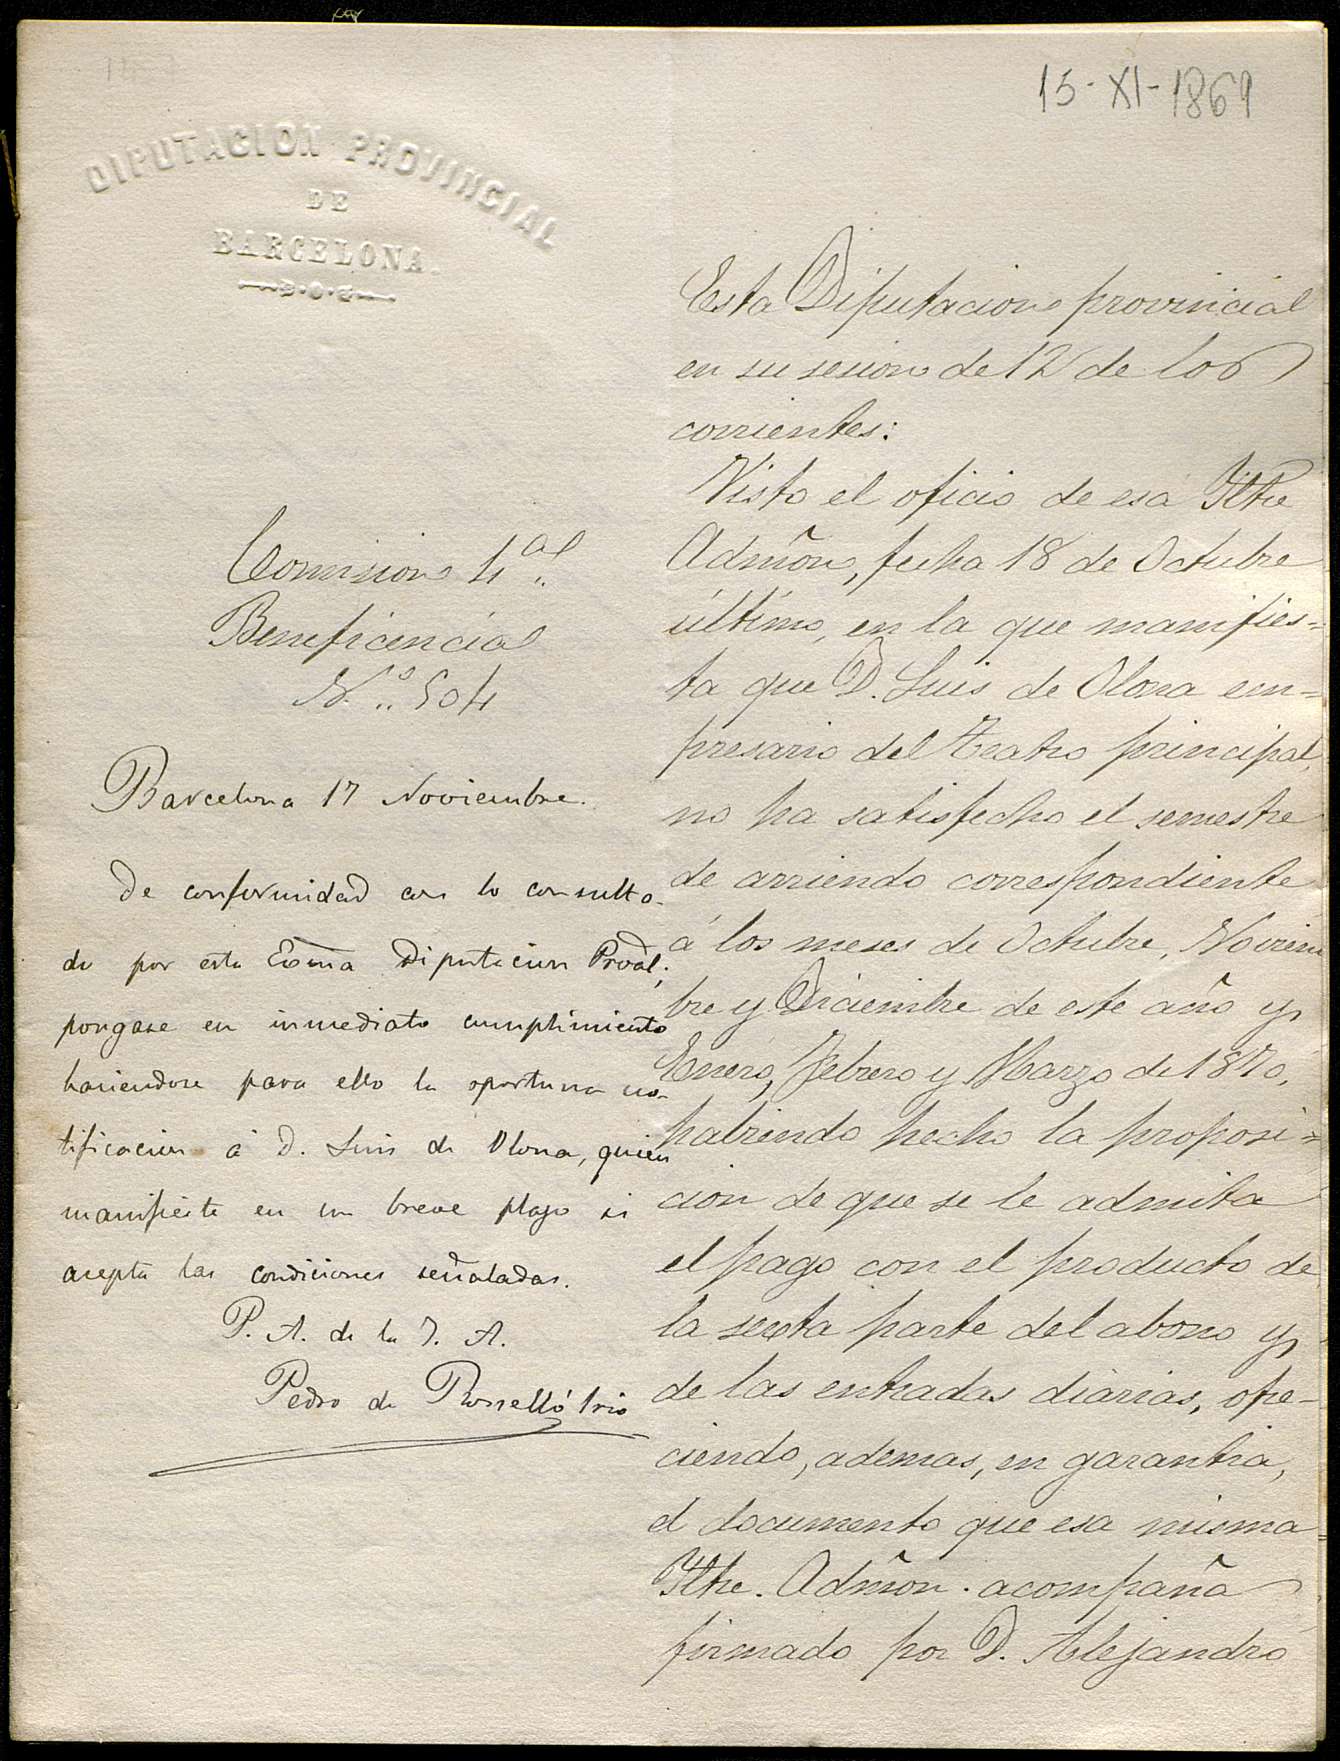 15-XI-1869
DIPUTACION PROVINCIAL
DE
BARCELONA.
Comision 4.ª
Beneficencia
N.º 504
Barcelona 17 Noviembre.
De conformidad con lo consulta-
do por esta Exma Diputacion Proal,
pongase en inmediato cumplimiento
haciendose para ello la oportuna no-
tificacion á D. Luis de Olona, quien
manifieste en un breve plazo si
acepta las condiciones señaladas.
P. A. de la J. A.
Pedro de Rosselló
Esta Diputacion provincial
en su sesion de 12 de los
corrientes:
Visto el oficio de esa Iltre
Admõn, fecha 18 de Octubre
último, en la que manifies=
ta que D. Luis de Olona em=
presario del Teatro principal,
no ha satisfecho el semestre
de arriendo correspondiente
á los meses de Octubre, Noviem
bre y Diciembre de este año y
Enero, Febrero y Marzo de 1870,
habiendo hecho la proposi=
cion de que se le admita
el pago con el producto de
la sexta parte del abono y
de las entradas diarias, ofre-
ciendo, ademas, en garantia,
el documento que esa misma
Iltre. Admõn. acompaña
firmado por D. Alejandro